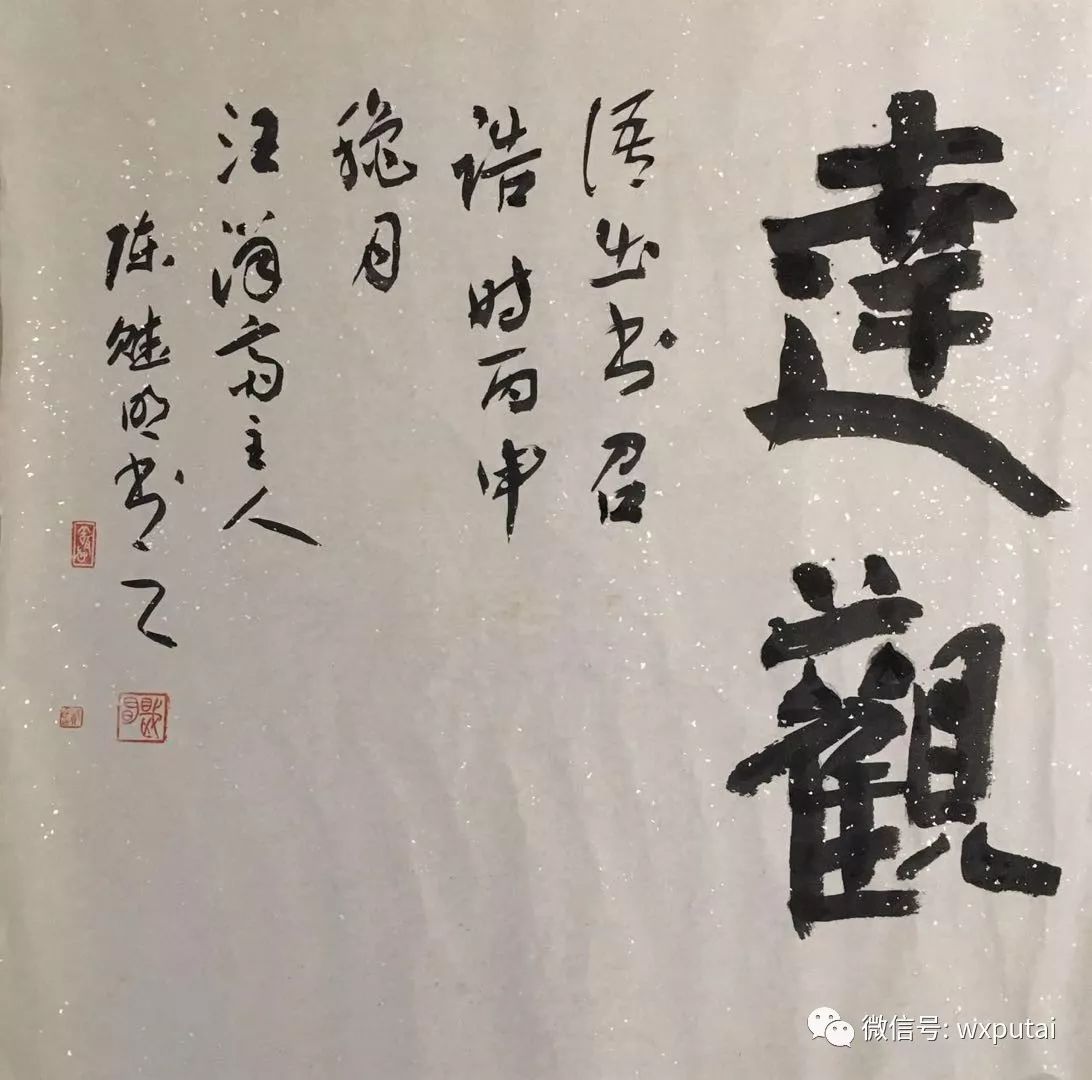 達觀
语出书召
诰时丙申
穐月
汪洋斋主人
陈 明书
微信号: wxputai